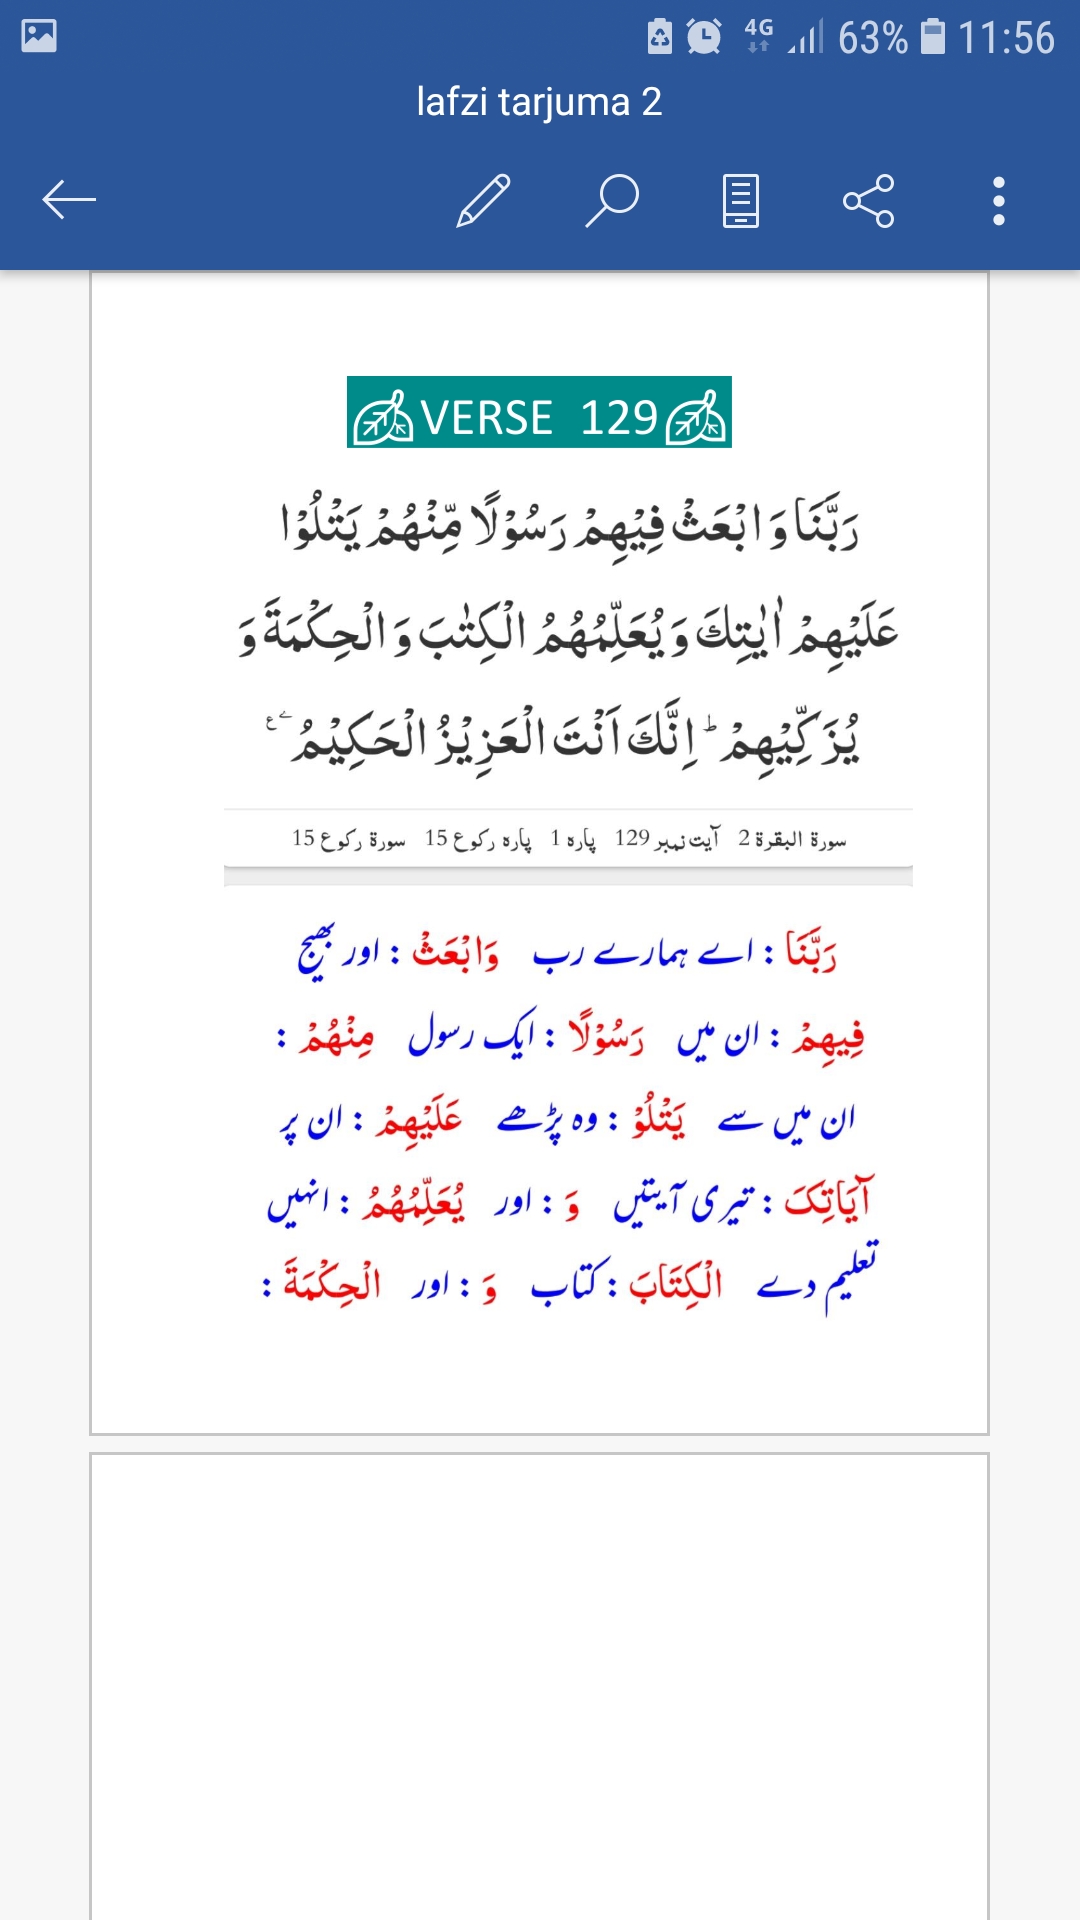 63% 11:56
4G
lafzi tarjuma 2
VERSE 129
رَبَّنَا وَ ابْعَثْ فِیْهِمْ رَسُوْلًا مِّنْهُمْ یَتْلُوْا
عَلَیْهِمْ اٰیٰتِكَ وَ یُعَلِّمُهُمُ الْكِتٰبَ وَ الْحِكْمَةَ وَ
یُزَكِّیْهِمْ ؕ اِنَّكَ اَنْتَ الْعَزِیْزُ الْحَكِیْمُ
سورۃ البقرۃ 2 آیت نمبر 129 پارہ 1 پارہ رکوع 15 سورۃ رکوع 15
رَبَّنَا : اے ہمارے رب وَابْعَثْ : اور بھیج
فِيهِمْ : ان میں رَسُوْلًا : ایک رسول مِنْهُمْ :
ان میں سے يَتْلُوْ : وہ پڑھے عَلَيْهِمْ : ان پر
آيَاتِکَ : تیری آیتیں وَ : اور يُعَلِّمُهُمُ : انہیں
تعلیم دے الْكِتَابَ : کتاب وَ : اور الْحِكْمَةَ :